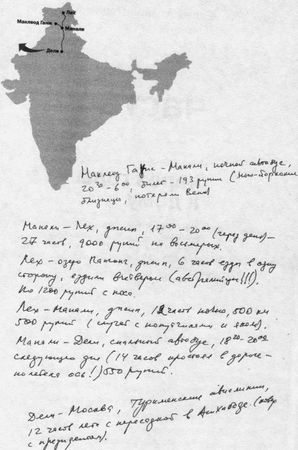 Лех
Маклеод Ганж
Манали
Дели
Маклеод Ганж – Манали, ночной автобус,
20³⁰ – 6⁰⁰, билет – 193 рупии (Нью-йоркские
близнецы, потеряли Веню)
Манали – Лех, джип, 17⁰⁰ – 20⁰⁰ (через день) –
27 часов, 9000 рупий на восьмерых.
Лех – озеро Пангонг, джип, 6 часов езды в одну
сторону, ездили вчетвером
По 1200 рупий с носа.
Лех – Манали, джип, 18 часов ночью, 500 км
500 рупий (случай с попутчиками и яком).
Манали – Дели, спальный автобус, 18³⁰ – 20⁰⁰
следующего дня (14 часов простоял в дороге –
полетела ось!) 550 рупий.
Дели – Москва, Туркменские авиалинии,
12 часов лёта с пересадкой в Ашхабаде
с